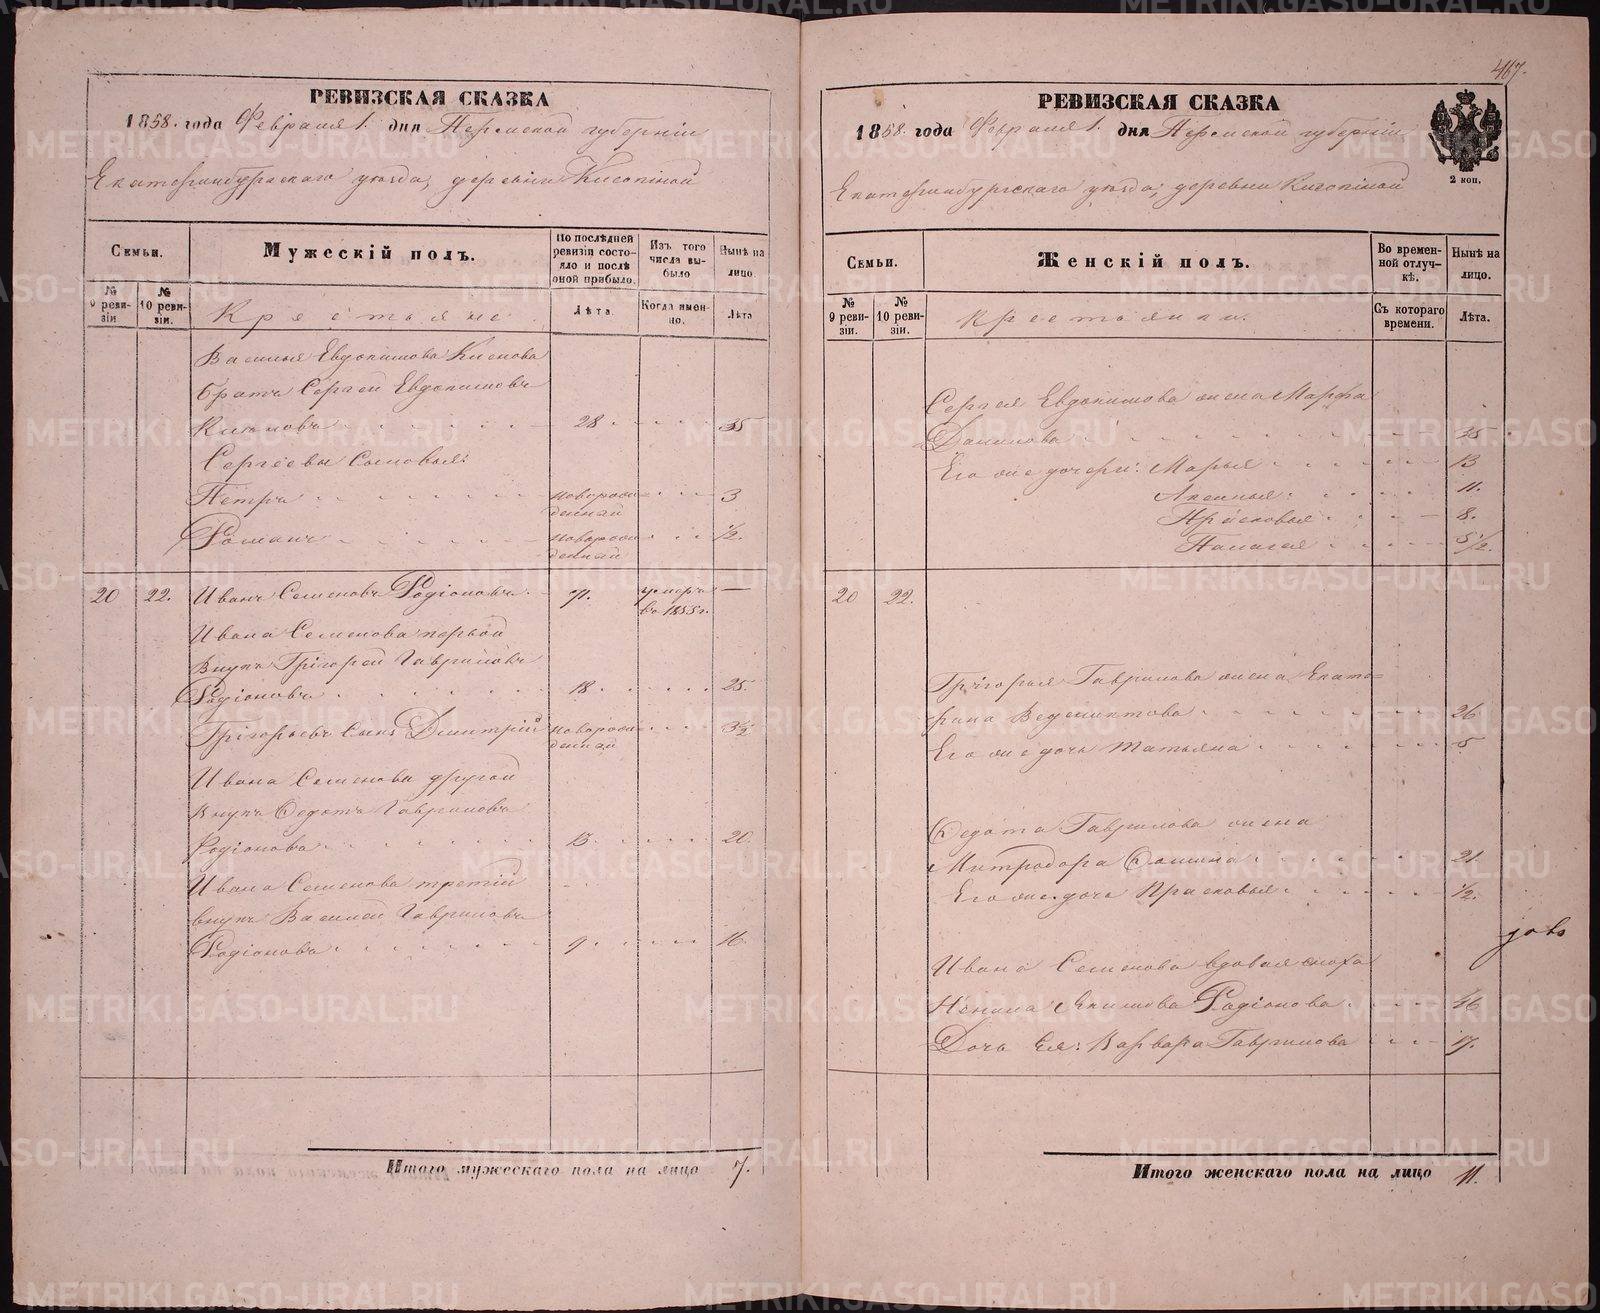 467.
РЕВИЗСКАЯ СКАЗКА
1858. года Февраля 1. дня Пермской губернии
Екатеринбургскаго уезда, деревни
Семьи.
Мужескій полъ.
По последней ревизіи состояло и после оной прибыло.
Изъ того числа выбыло
Ныне на лицо.
№ 9 ревизіи
№ 10 ревизіи.
Крестьяне
Лета.
Когда именно.
Лета
Василья Евдокимова
братъ Сергей Евдокимовъ
28 35
Сергеевы сыновья:
Петръ новорожденный 3
Романъ новорожденный 1/2.
20 22. Иванъ Семеновъ Родіоновъ 71. умеръ въ 1855 г. —
Ивана Семенова первой
внукъ Григорей Гавриловъ
Родіоновъ 18 25.
Григорьевъ сынъ Дмитрій новорожденный 3 1/2
Ивана Семенова другой
внукъ Федотъ Гавриловъ
Родіоновъ 13. 20.
Ивана Семенова третій
внукъ Василей Гавриловъ
Родіоновъ 9. 16.
Итого мужескаго пола на лицо 7.
РЕВИЗСКАЯ СКАЗКА
1858. года Февраля 1. дня Пермской губерніи
2 коп.
Екатеринбургскаго уезда, деревни
Семьи.
Женскій полъ.
Во временной отлучке.
Ныне на лицо.
№ 9 ревизіи.
№ 10 ревизіи.
Крестьянки.
Съ котораго времени.
Лета.
Сергея Евдокимова жена Марфа
Данилова 35
Его же дочери: Марья 13
Аксинья 11.
Прасковья 8.
Палагея 5 1/2.
20 22.
Григорья Гаврилова жена Екате-
рина Ведениктова 26
Его же дочь Татьяна 5
Федота Гаврилова жена
Митродора Фомина 21.
Его же дочь Прасковья 1/2.
Ивана Семенова вдовая сноха
Ненила Якимова Родіонова 46
Дочь Ея: Варвара Гаврилова 17.
Итого женскаго пола на лицо 11.
METRIKI.GASO-URAL.RU